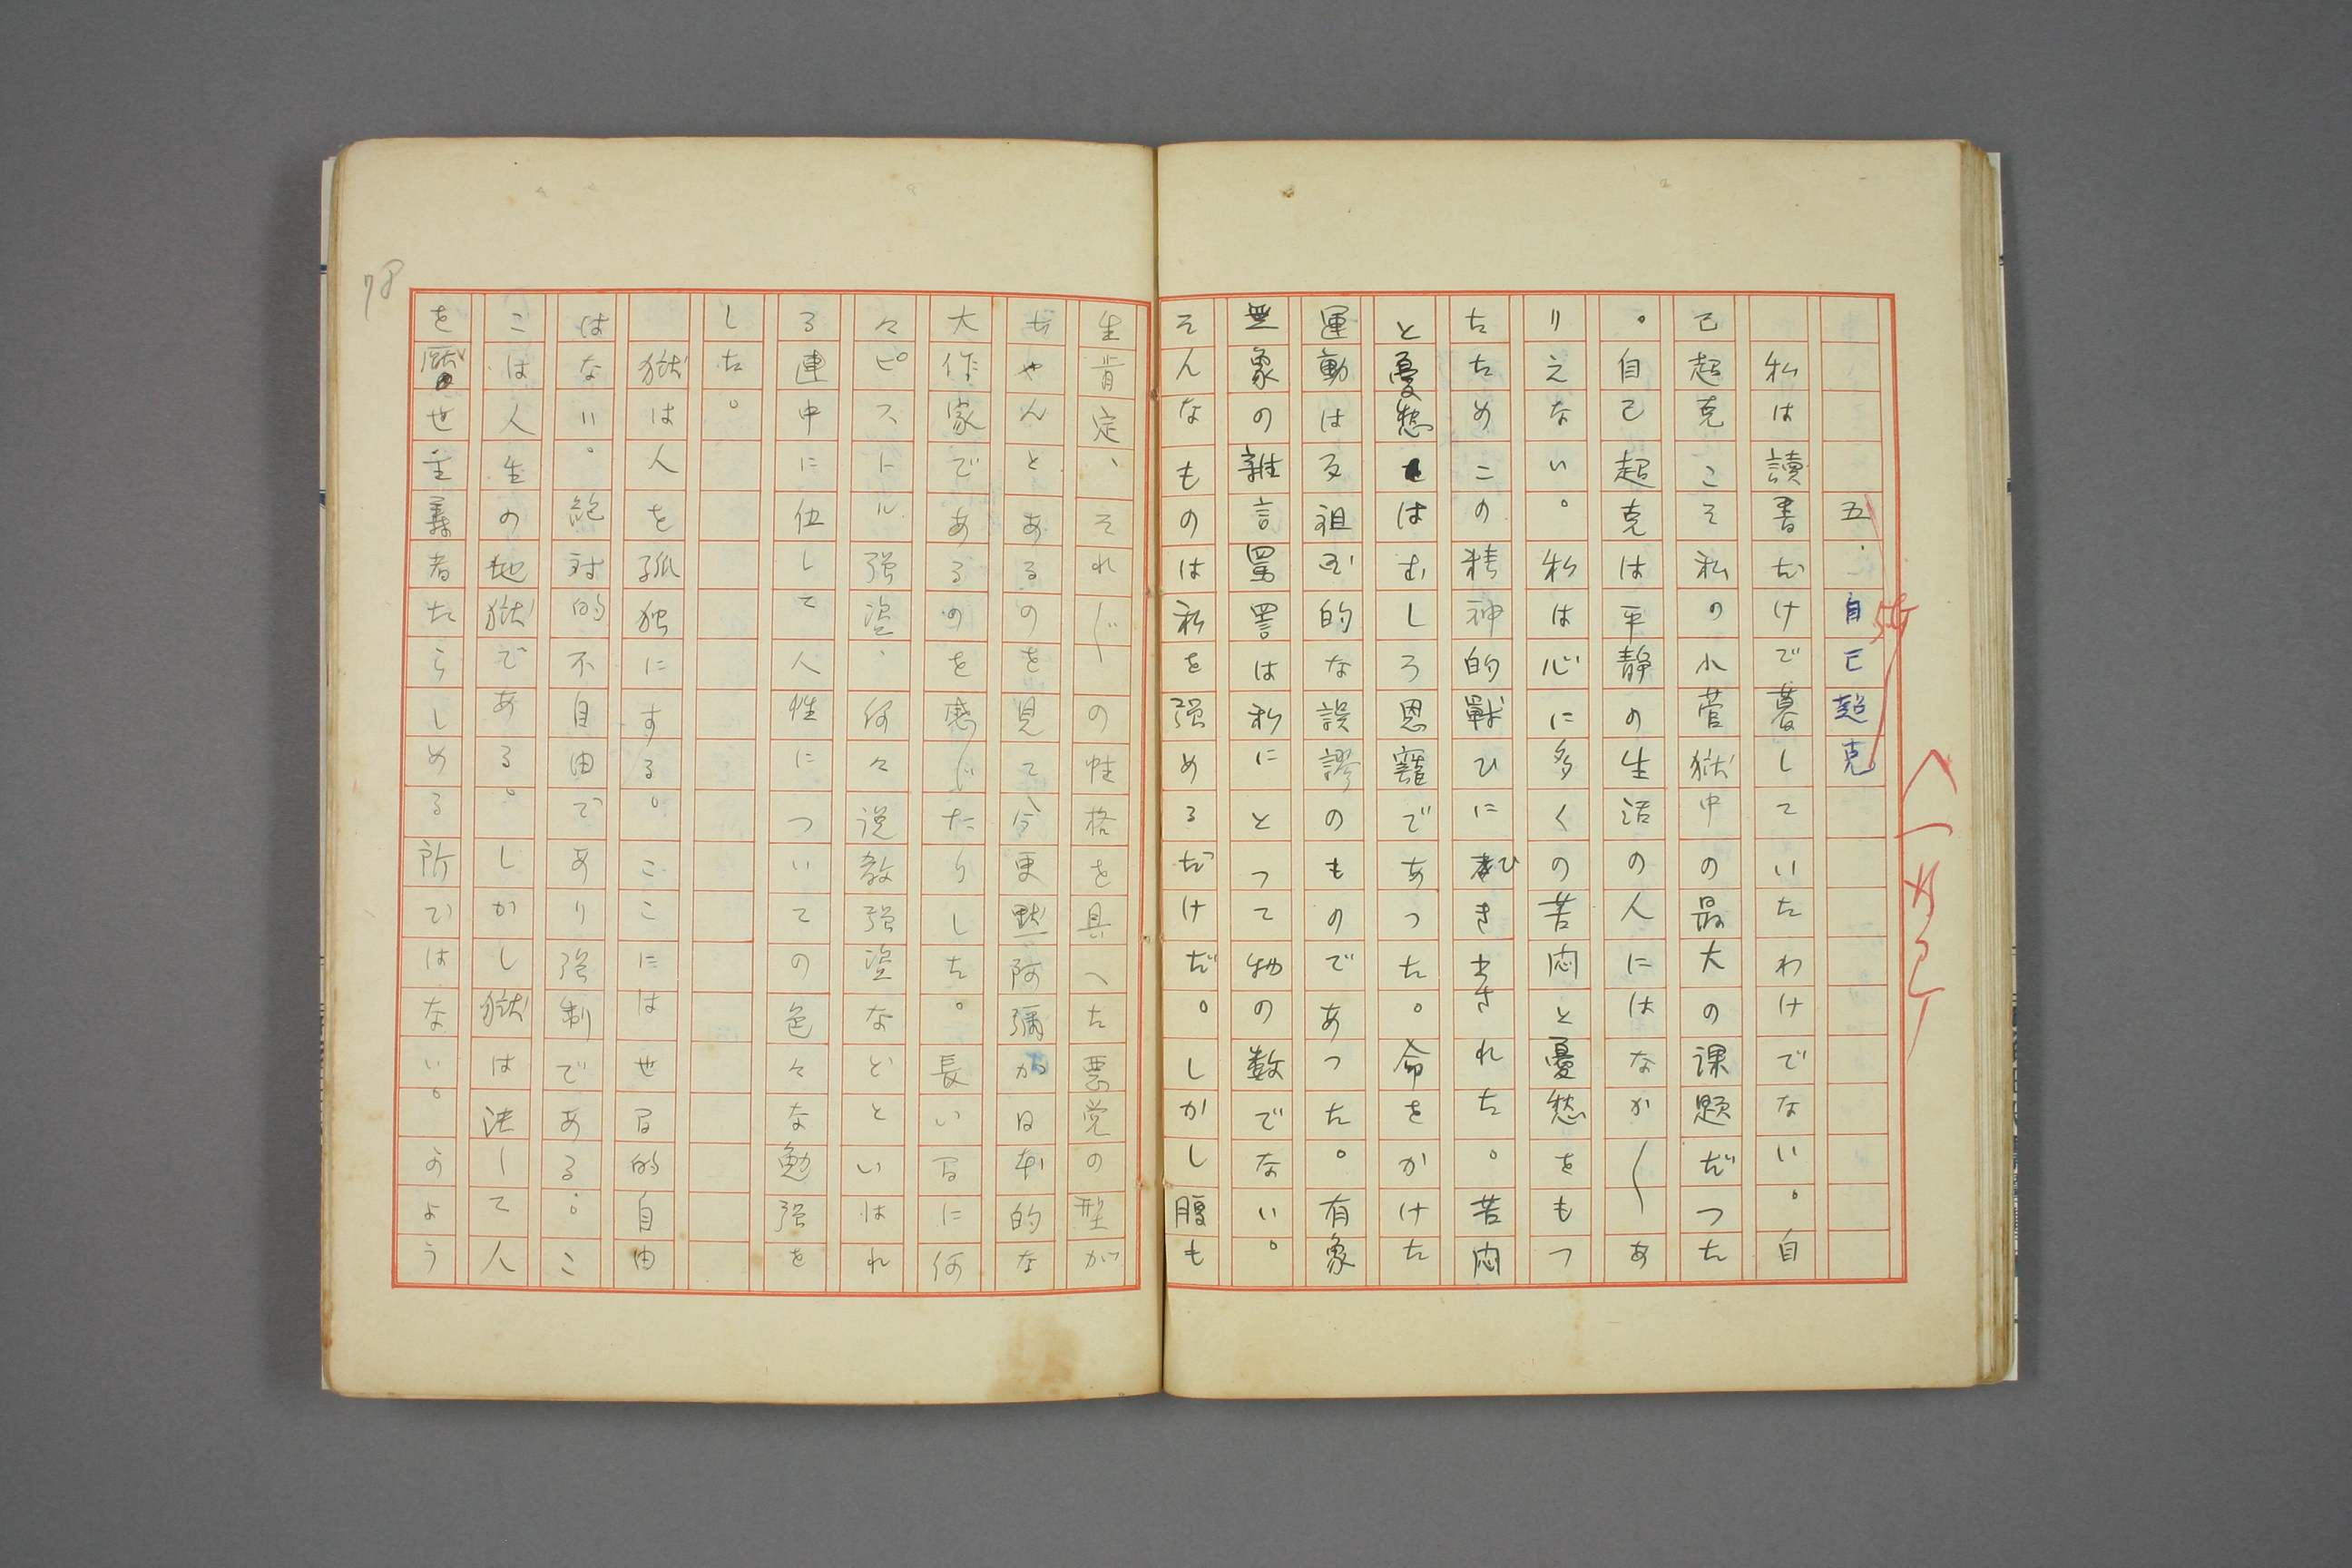 五．自己超克
私は讀書だけで暮していたわけでない。自
己超克こそ私の小菅獄中の最大の課題だつた
。自己超克は平静の生活の人にはなか〱あ
りえない。私は心に多くの苦悶と憂愁をもつ
たためこの精神的戰ひにひききされた。苦悶
と憂愁はむしろ恩寵であつた。命をかけた
運動は反祖国的な誤謬のものであつた。有象
無象の雜言罵詈は私にとつて物の数でない。
そんなものは私を强めるだけだ。しかし腹も
生肯定、それ〲の性格を具へた悪党の型が
ちやんとあるのを見て今更默阿彌が日本的な
大作家であるのを感じたりした。長い間に何
々ピストル强盗、何々説教强盗などといはれ
る連中に伍して人性についての色々な勉强を
した。
獄は人を孤独にする。ここには世間的自由
はない。絶対的不自由であり强制である。こ
こは人生の地獄である。しかし獄は決して人
を厭世主義者たらしめる所ではない。のよう
78